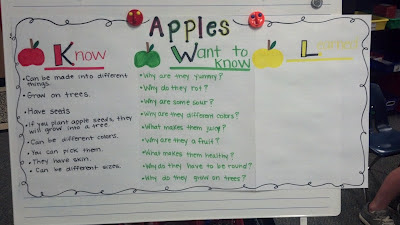 Apples
Know
• Can be made into different
things.
• Grow on trees.
• Have seeds
• If you plant apple seeds, they
will grow into a tree
• Can be different colors.
• You can pick them.
• They have skin.
• Can be different sizes.
Want to
know
• Why are they yummy?
• Why do they rot?
• Why are some sour?
• Why are they different colors?
• What makes them juicy?
• Why are they a fruit?
• What makes them healthy?
• Why do they have to be round?
• Why do they grow on trees?
Learned